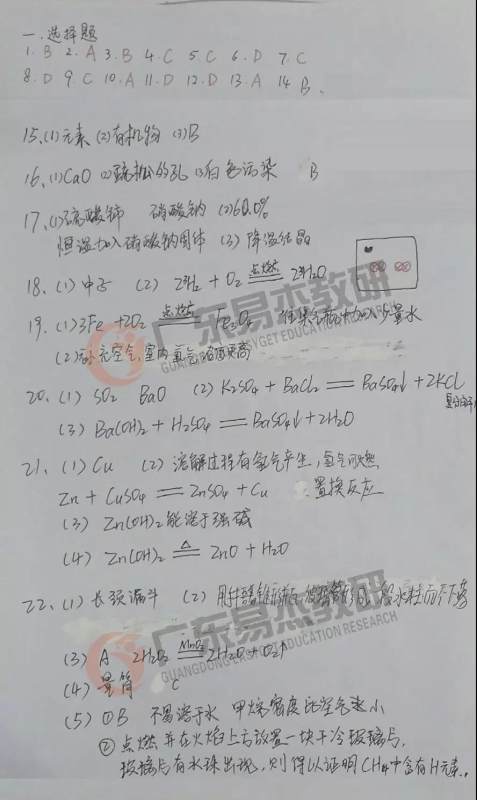 一.选择题
1.B 2.A 3.B 4.C 5.C 6.D 7.C
8.D 9.C 10.A 11.D 12.D 13.A 14 B.
15.(1)元素 (2)有机物 (3)B
16.(1)CaO (2)疏松的孔 (3)白色污染 B
17.(1)硫酸铈 硝酸钠 (2)60.0%
恒温加入硝酸钠固体 (3)降温结晶
18.(1)中子 (2) 2H₂ + O₂ 点燃 2H₂O
19.(1)3Fe + 2O₂ 点燃 Fe₃O₄ 集气瓶中加入少量水
(2)补充空气,室内氧气
20.(1) SO₂ BaO (2) K₂SO₄ + BaCl₂ = BaSO₄↓ + 2KCl
(3) Ba(OH)₂ + H₂SO₄ = BaSO₄↓ + 2H₂O
21.(1) Cu (2) 溶解过程有氢气产生,氢气可燃
Zn + CuSO₄ = ZnSO₄ + Cu 置换反应
(3) Zn(OH)₂能溶于强碱
(4) Zn(OH)₂ △ ZnO + H₂O
22.(1) 长颈漏斗 (2) 用 一段水柱而不下落
(3) A 2H₂O₂ MnO₂ 2H₂O + O₂↑
(4) 量筒 C
(5) ①B 不易溶于水 甲烷密度比空气小
② 点燃并在火焰上方放置一块干冷玻璃片,
玻璃片有水珠出现,则得以证明CH₄中含有H元素.
广东易杰教研
GUANGDONG EASYGET EDUCATION RESEARCH
广东易杰教研
GUANGDONG EASYGET EDUCATION RESEARCH